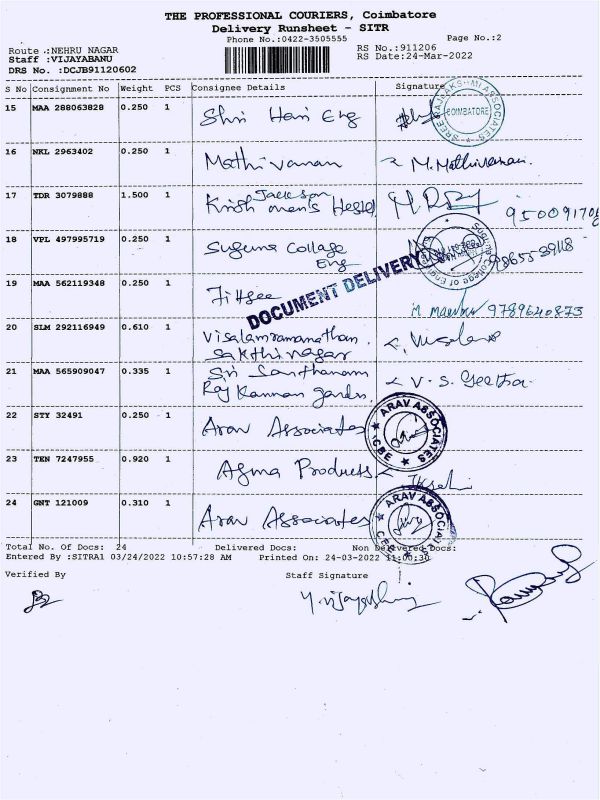 THE PROFESSIONAL COURIERS, Coimbatore
Delivery Runsheet - SITR
Phone No.:0422-3505555
Page No.:2
Route .:NEHRU NAGAR
Staff :VIJAYABANU
DRS No. :DCJB91120602
RS No.:911206
RS Date:24-Mar-2022
S No Consignment No Weight PCS Consignee Details Signature
15 MAA 288063828 0.250 1 Shri Hari Eng
SREE RAJALAKSHMI ASSOCIATES
COIMBATORE
16 NKL 2963402 0.250 1 Mathivanan M. Mathivanan.
17 TDR 3079888 1.500 1 Krish Jackson men's Hostel
18 VPL 497995719 0.250 1 Suguna College
Eng
Suguna College of Engin
DOCUMENT DELIVERY
19 MAA 562119348 0.250 1 Fiitjee 9789640873
20 SLM 292116949 0.610 1 Visalamramanathan.
Sakthinagar
21 MAA 565909047 0.335 1 Sri Santhanam V. S. Geetha
Raj Kannan garden.
22 STY 32491 0.250 1 Arav Associates
ARAV ASSOCIATES
CBE
23 TEN 7247955 0.920 1 Agma Products
24 GNT 121009 0.310 1 Arav Associates
ARAV ASSOCIATES
Total No. Of Docs: 24 Delivered Docs: Non Delivered Docs:
Entered By :SITRA1 03/24/2022 10:57:28 AM Printed On: 24-03-2022 11:00:30
Verified By Staff Signature